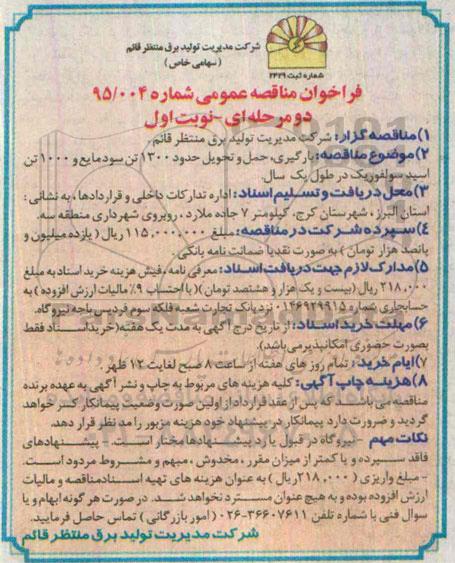 شرکت مدیریت تولید برق منتظر قائم
(سهامی خاص)
شماره ثبت ۲۴۲۹
فراخوان مناقصه عمومی شماره ۹۵/۰۰۴
دو مرحله ای - نوبت اول
۱) مناقصه گزار: شرکت مدیریت تولید برق منتظر قائم.
۲) موضوع مناقصه: بارگیری، حمل و تحویل حدود ۱۳۰۰ تن سود مایع و ۱۰۰۰ تن
اسید سولفوریک در طول یک سال.
۳) محل دریافت و تسلیم اسناد: اداره تدارکات داخلی و قراردادها، به نشانی:
استان البرز، شهرستان کرج، کیلومتر ۷ جاده ملارد، روبروی شهرداری منطقه سه.
۴) سپرده شرکت در مناقصه: مبلغ ۱۱۵,۰۰۰,۰۰۰ ریال (یازده میلیون و
پانصد هزار تومان) به صورت نقد یا ضمانت نامه بانکی.
۵) مدارک لازم جهت دریافت اسناد: معرفی نامه، فیش هزینه خرید اسناد به مبلغ
۲۱۸,۰۰۰ ریال (بیست و یک هزار و هشتصد تومان) (با احتساب ۹٪ مالیات ارزش افزوده) به
حساب جاری شماره ۰۱۴۶۹۲۹۹۱۵ نزد بانک تجارت شعبه فلکه سوم فردیس باجه نیروگاه.
۶) مهلت خرید اسناد: از تاریخ درج آگهی به مدت یک هفته (خرید اسناد فقط
بصورت حضوری امکانپذیر می باشد).
۷) ایام خرید: تمام روز های هفته از ساعت ۸ صبح لغایت ۱۲ ظهر.
۸) هزینه چاپ آگهی: کلیه هزینه های مربوط به چاپ و نشر آگهی به عهده برنده
مناقصه می باشد که پس از عقد قرارداد از اولین صورت وضعیت پیمانکار کسر خواهد
گردید و ضرورت دارد پیمانکار در پیشنهاد خود هزینه مزبور را مد نظر قرار دهد.
نکات مهم - نیروگاه در قبول یا رد پیشنهادها مختار است. - پیشنهادهای
فاقد سپرده و یا کمتر از میزان مقرر، مخدوش، مبهم و مشروط مردود است.
- مبلغ واریزی (۲۱۸,۰۰۰ ریال) به عنوان هزینه های تهیه اسناد مناقصه و مالیات
ارزش افزوده بوده و به هیچ عنوان مسترد نخواهد شد. در صورت هر گونه ابهام و یا
سوال فنی با شماره تلفن ۳۶۶۰۷۶۱۱-۰۲۶ (امور بازرگانی) تماس حاصل فرمایید.
شرکت مدیریت تولید برق منتظر قائم